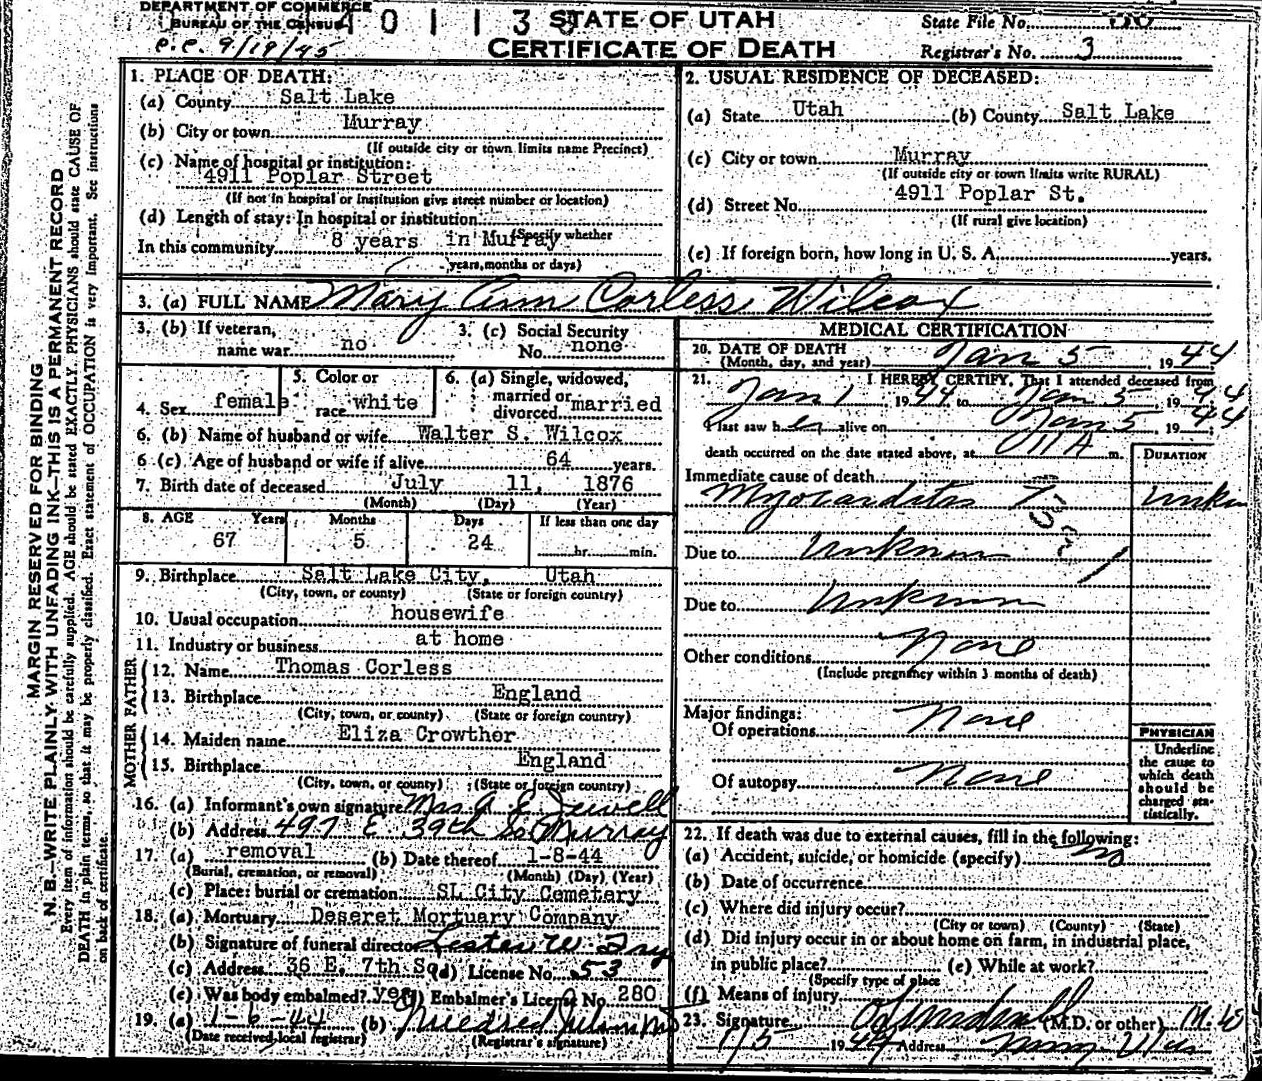 DEPARTMENT OF COMMERCE
BUREAU OF THE CENSUS
STATE OF UTAH
CERTIFICATE OF DEATH
State File No.
Registrar's No. 3
P.C. 9/19/45
MARGIN RESERVED FOR BINDING
N. B.—WRITE PLAINLY WITH UNFADING INK—THIS IS A PERMANENT RECORD
Every item of information should be carefully supplied. AGE should be stated EXACTLY. PHYSICIANS should state CAUSE OF
DEATH in plain terms, so that it may be properly classified. Exact statement of OCCUPATION is very important. See instructions
on back of certificate.
1. PLACE OF DEATH:
(a) County Salt Lake
(b) City or town Murray
(If outside city or town limits name Precinct)
(c) Name of hospital or institution:
4911 Poplar Street
(If not in hospital or institution give street number or location)
(d) Length of stay: In hospital or institution
(Specify whether
In this community 8 years in Murray
years, months or days)
2. USUAL RESIDENCE OF DECEASED:
(a) State Utah (b) County Salt Lake
(c) City or town Murray
(If outside city or town limits write RURAL)
(d) Street No. 4911 Poplar St.
(If rural give location)
(e) If foreign born, how long in U. S. A. years.
3. (a) FULL NAME Mary Ann Corless Wilcox
3. (b) If veteran, name war no
3. (c) Social Security No. none
4. Sex female
5. Color or race white
6. (a) Single, widowed, married or divorced married
6. (b) Name of husband or wife Walter S. Wilcox
6 (c) Age of husband or wife if alive 64 years.
7. Birth date of deceased July 11, 1876
(Month) (Day) (Year)
8. AGE Years Months Days If less than one day
67 5 24 hr. min.
9. Birthplace Salt Lake City, Utah
(City, town, or county) (State or foreign country)
10. Usual occupation housewife
11. Industry or business at home
FATHER
12. Name Thomas Corless
13. Birthplace England
(City, town, or county) (State or foreign country)
MOTHER
14. Maiden name Eliza Crowther
15. Birthplace England
(City, town, or county) (State or foreign country)
16. (a) Informant's own signature Mrs A E Jewell
(b) Address 497 E 39th So Murray
17. (a) removal (b) Date thereof 1-8-44
(Burial, cremation, or removal) (Month) (Day) (Year)
(c) Place: burial or cremation SL City Cemetery
18. (a) Mortuary Deseret Mortuary Company
(b) Signature of funeral director Lester W. Fry
(c) Address 36 E. 7th So (d) License No. 53
(e) Was body embalmed? yes (f) Embalmer's License No. 280
19. (a) 1-6-44 (b) Mildred
(Date received local registrar) (Registrar's signature)
MEDICAL CERTIFICATION
20. DATE OF DEATH
(Month, day, and year) Jan 5 1944
21. I HEREBY CERTIFY, That I attended deceased from
Jan 1, 1944 to Jan 5 1944
I last saw her alive on Jan 5, 1944;
death occurred on the date stated above, at 11 A m.
DURATION
Immediate cause of death
Myocarditis
Due to Unknown
Due to Unknown
Other conditions None
(Include pregnancy within 3 months of death)
Major findings:
Of operations None
Of autopsy None
PHYSICIAN
Underline
the cause to
which death
should be
charged sta-
tistically.
22. If death was due to external causes, fill in the following:
(a) Accident, suicide, or homicide (specify) no
(b) Date of occurrence
(c) Where did injury occur?
(City or town) (County) (State)
(d) Did injury occur in or about home on farm, in industrial place,
in public place? (e) While at work?
(Specify type of place
(f) Means of injury
23. Signature (M.D. or other) M.D
1/5 1944 Address Murray Utah